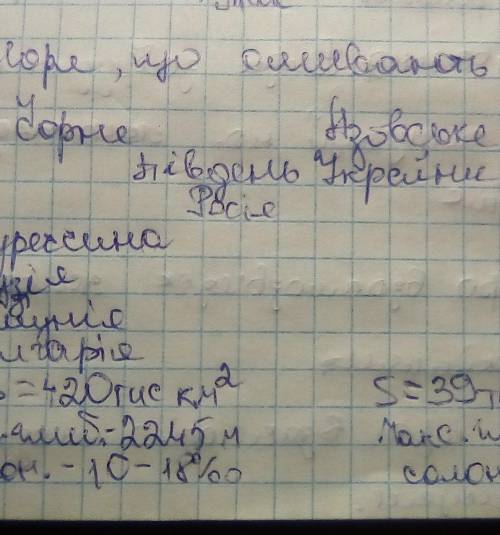 Моря, що омивають
Чорне Азовське
південь Укрейни
Росія
уреччина
зія
мунія
лгарія
S = 420 тис км² S = 39 т
глиб. - 2245 м Макс. гл
он. - 10 - 18‰ солон